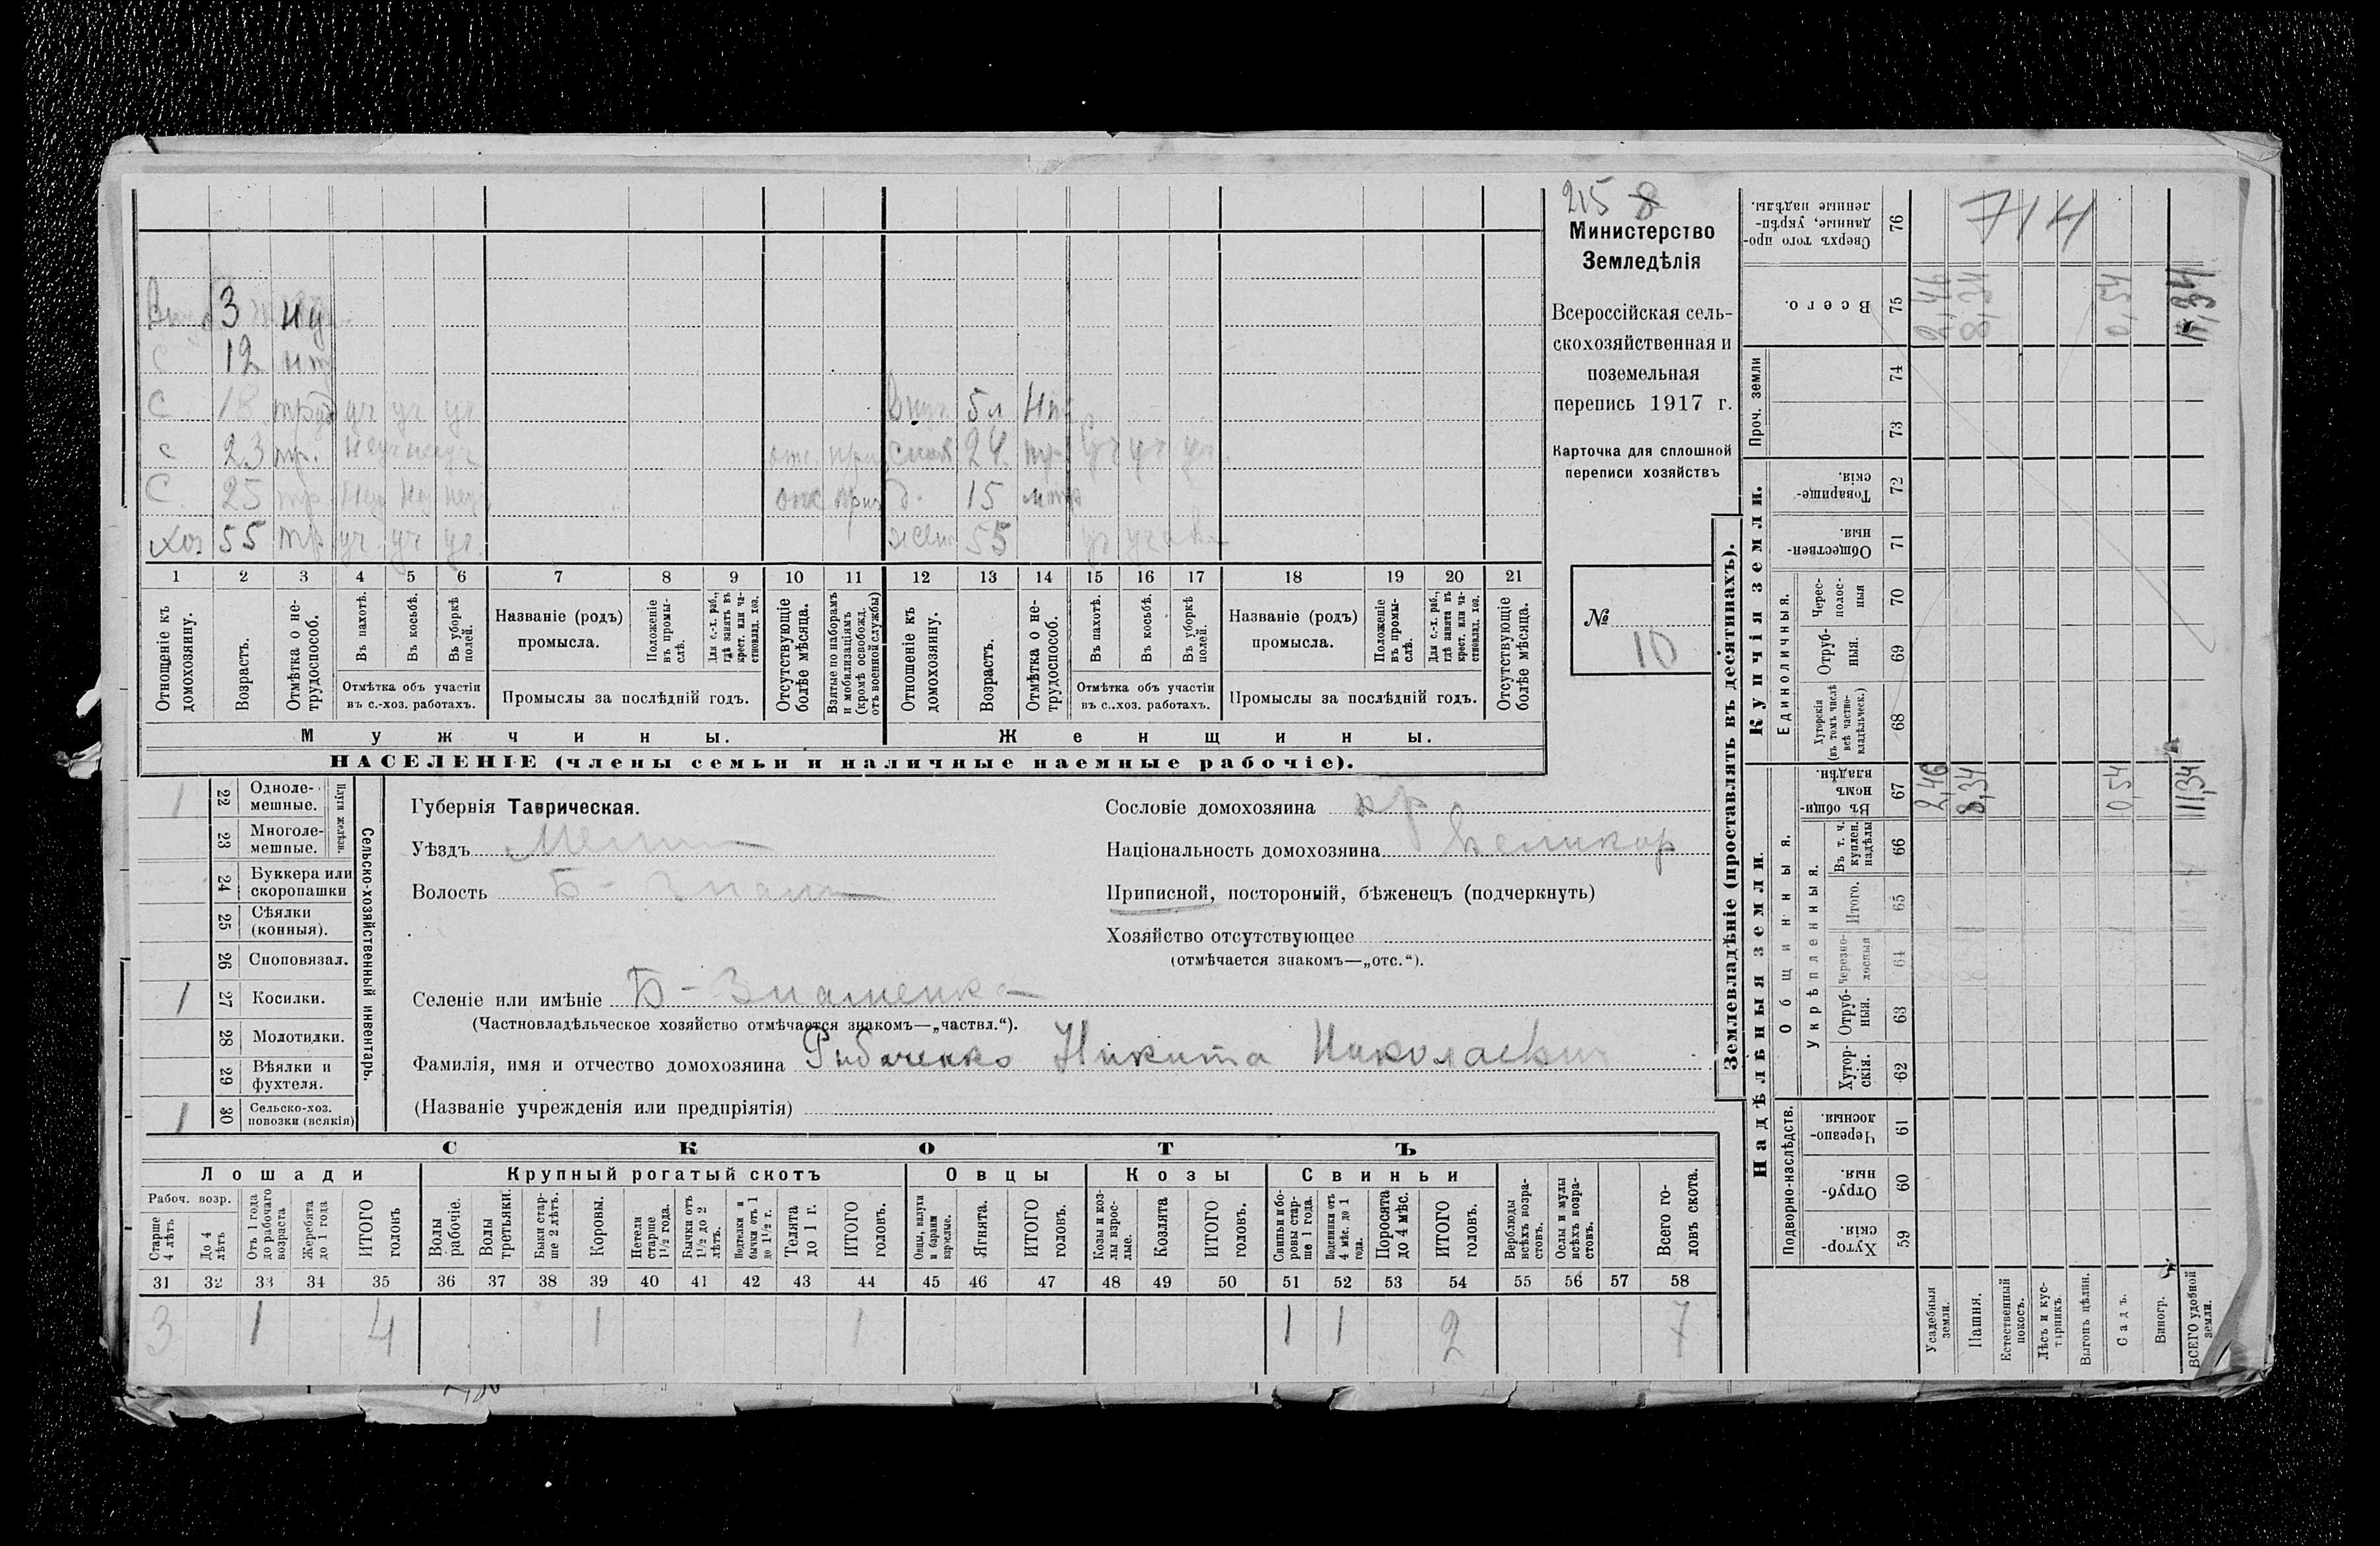 215 8
Министерство
Земледѣлія
Всероссійская сель-
скохозяйственная и
поземельная
перепись 1917 г.
Карточка для сплошной
переписи хозяйствъ
№
10
3
С 12
С 18 труд уч уч уч
Внуч. 5 л
с 23 тр. неуч неуч
24 тр уч уч уч
С. 25 тр
15
Хоз 55 тр уч уч уч
жена 55 уч уч
1 2 3 4 5 6 7 8 9 10 11 12 13 14 15 16 17 18 19 20 21
Отношеніе къ домохозяину.
Возрастъ.
Отмѣтка о не-трудоспособ.
Въ пахотѣ.
Въ косьбѣ.
Въ уборкѣ полей.
Отмѣтка объ участіи
въ с.-хоз. работахъ.
Названіе (родъ)
промысла.
Положеніе въ промы-слѣ.
Для с.-х. раб., гдѣ занятъ въ крест. или ча-стновлад. хоз.
Промыслы за послѣдній годъ.
Отсутствующіе болѣе мѣсяца.
Взятые по наборамъ и мобилизаціямъ (кромѣ освобожд. отъ военной службы)
Отношеніе къ домохозяину.
Возрастъ.
Отмѣтка о не-трудоспособ.
Въ пахотѣ.
Въ косьбѣ.
Въ уборкѣ полей.
Отмѣтка объ участіи
въ с..хоз. работахъ.
Названіе (родъ)
промысла.
Положеніе въ промы-слѣ.
Для с.-х. раб., гдѣ занята въ крест. или ча-стновлад. хоз.
Промыслы за послѣдній годъ.
Отсутствующіе болѣе мѣсяца.
Мужчины.
Женщины.
НАСЕЛЕНІЕ (члены семьи и наличные наемные рабочіе).
1 22 Одноле-мешные.
23 Многоле-мешные.
Плуги желѣзн.
24 Буккера или скоропашки
25 Сѣялки (конныя).
26 Сноповязал.
1 27 Косилки.
28 Молотилки.
29 Вѣялки и фухтеля.
1 30 Сельско-хоз. повозки (всякія)
Сельско-хозяйственный инвентарь.
Губернія Таврическая.
Уѣздъ Мелит
Волость Б-Знам
Селеніе или имѣніе Б-Знаменка
(Частновладѣльческое хозяйство отмѣчается знакомъ—„частвл.“).
Фамилія, имя и отчество домохозяина Рибаченко Никита Николаевич
(Названіе учрежденія или предпріятія)
Сословіе домохозяина кр
Національность домохозяина Великор
Приписной, посторонній, бѣженецъ (подчеркнуть)
Хозяйство отсутствующее
(отмѣчается знакомъ—„отс.“).
СКОТЪ
Лошади
Крупный рогатый скотъ
Овцы
Козы
Свиньи
Рабоч. возр.
Старше 4 лѣтъ
До 4 лѣтъ
Отъ 1 года до рабочаго возраста
Жеребята до 1 года
ИТОГО головъ
Волы рабочіе.
Волы третьяки.
Быки стар-ше 2 лѣтъ.
Коровы.
Нетели старше 1½ года.
Бычки отъ 1½ до 2 лѣтъ.
Подтелки и бычки отъ 1 до 1½ г.
Телята до 1 г.
ИТОГО головъ.
Овцы, валухи и бараны взрослые.
Ягнята.
ИТОГО головъ.
Козы и коз-лы взрос-лые.
Козлята
ИТОГО головъ.
Свиньи и бо-ровы стар-ше 1 года.
Подсвинки отъ 4 мѣс. до 1 года.
Поросята до 4 мѣс.
ИТОГО головъ.
Верблюды всѣхъ возра-стовъ.
Ослы и мулы всѣхъ возра-стовъ.
Всего го-ловъ скота.
31 32 33 34 35 36 37 38 39 40 41 42 43 44 45 46 47 48 49 50 51 52 53 54 55 56 57 58
3 1 4 1 1 1 1 2 7
Землевладѣніе (проставлять въ десятинахъ).
Надѣльныя земли.
Купчія земли.
Проч. земли
Подворно-наслѣдств.
Общинныя.
Укрѣпленныя.
Единоличныя.
714
Сверхъ того про-данные, укрѣп-ленные надѣлы. 76
Всего. 75 2,46 8,34 0,54 11,34
74
73
Товарище-скія. 72
Обществен-ныя. 71
Черес-полос-ныя 70
Отруб-ныя. 69
Хуторскія (въ томъ числѣ всѣ частно-владѣльческ.) 68
Въ общи-номъ владѣн. 67 2,46 8,34 0,54 11,34
Въ т. ч. куплен. надѣлы 66
Итого. 65
Черезпо-лосныя 64
Отруб-ныя. 63
Хутор-скія. 62
Черезпо-лосныя. 61
Отруб-ныя. 60
Хутор-скія. 59
Усадебныя земли.
Пашня.
Естественный покосъ.
Лѣсъ и кус-тарникъ.
Выгонъ цѣлин.
Садъ.
Виногр.
ВСЕГО удобной земли.